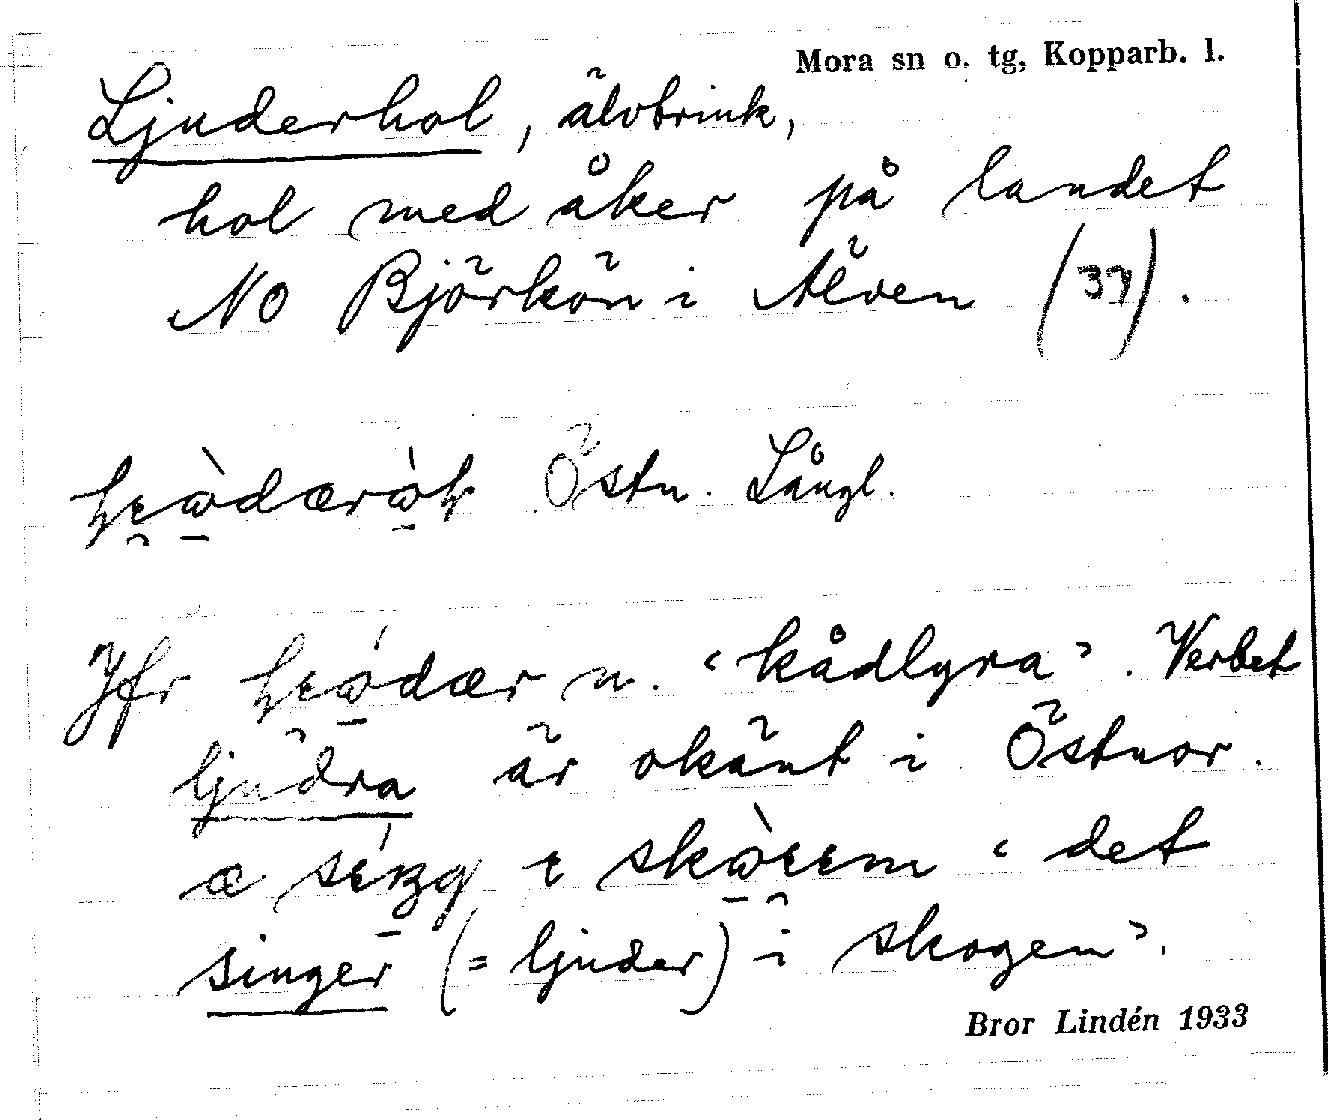 Mora sn o. tg, Kopparb. l.
Ljuderhol, älvbrink,
hol med åker på landet
NO Björkön i Älven (37).
Östn. Långl.
Jfr n. ‘kådlyra’. Verbet
ljudra är okänt i Östnor.
‘det
singer (= ljuder) i skogen’.
Bror Lindén 1933